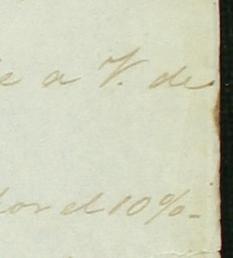 e a V. de
dor el 10%-